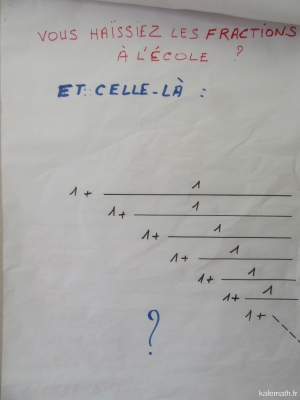 VOUS HAÏSSIEZ LES FRACTIONS
À L'ÉCOLE ?
ET CELLE-LÀ :
1
1 +
1
1 +
1
1 +
1
1 +
1
1 +
1
1 +
1 +
?
kalemath.fr